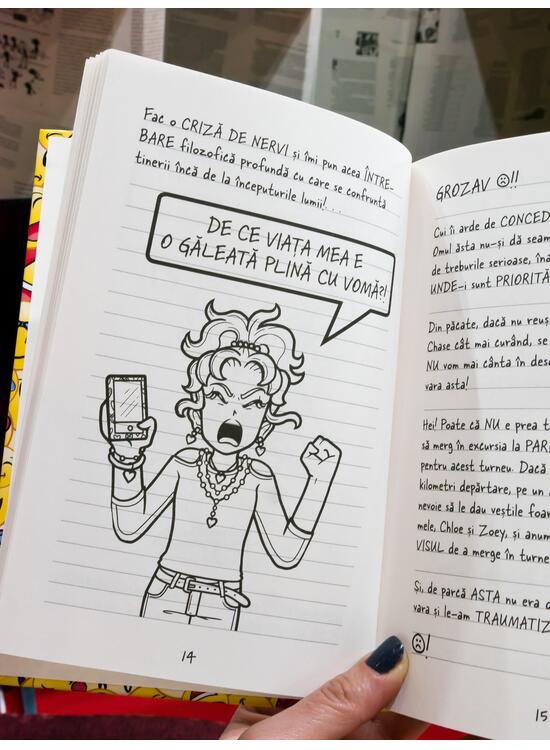 Fac o CRIZĂ DE NERVI și îmi pun acea ÎNTRE-
BARE filozofică profundă cu care se confruntă
tinerii încă de la începuturile lumii! . . .
DE CE VIAȚA MEA E
O GĂLEATĂ PLINĂ CU VOMĂ?!
14
GROZAV ☹!!
Cui îi arde de CONCED
Omul ăsta nu-și dă seam
de treburile serioase, îna
UNDE-i sunt PRIORITĂ
Din păcate, dacă nu reuș
Chase cât mai curând, se
NU vom mai cânta în desc
vara asta!
Hei! Poate că NU e prea t
să merg în excursia la PAR
pentru acest turneu. Dacă
kilometri depărtare, pe un
nevoie să le dau veștile foar
mele, Chloe și Zoey, și anum
VISUL de a merge în turne
Și, de parcă ASTA nu era d
vara și le-am TRAUMATIZ
☹!
15